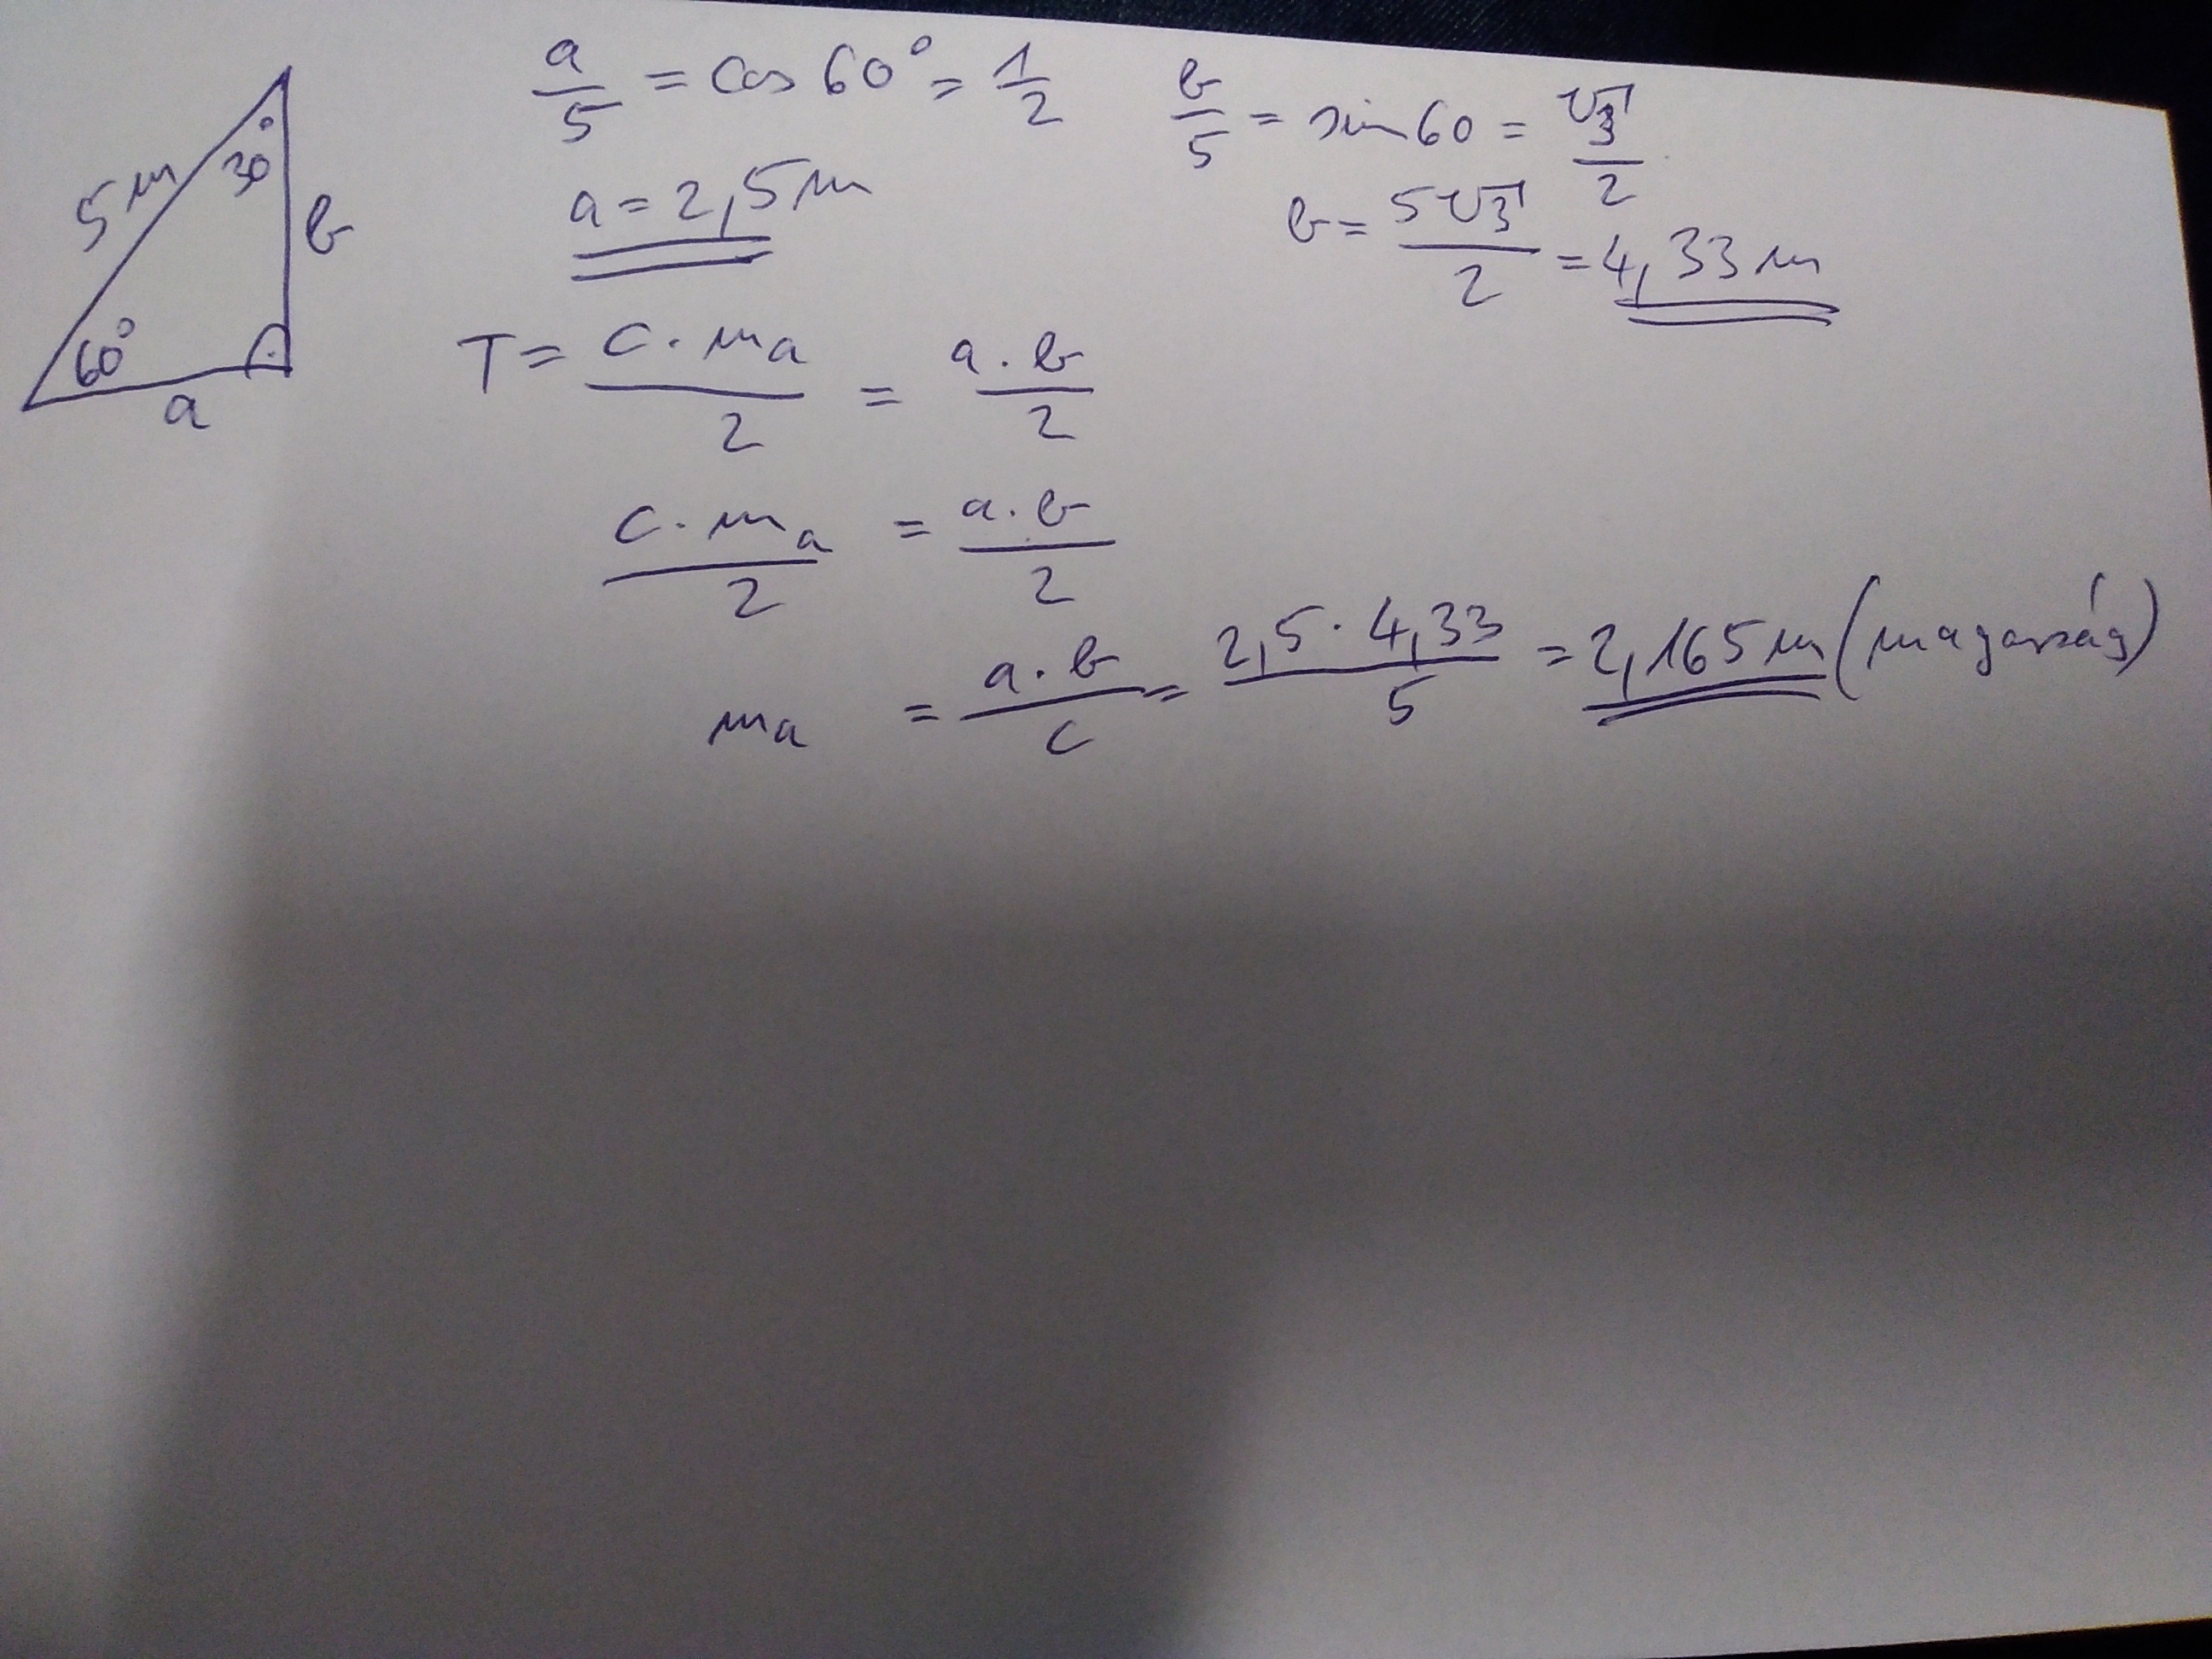 5 m
30°
b
60°
a
a/5 = cos 60° = 1/2
a = 2,5 m
b/5 = sin 60 = √3/2
b = 5√3/2 = 4,33 m
T = c · ma/2 = a · b/2
c · ma/2 = a · b/2
ma = a · b/c = 2,5 · 4,33/5 = 2,165 m (magasság)